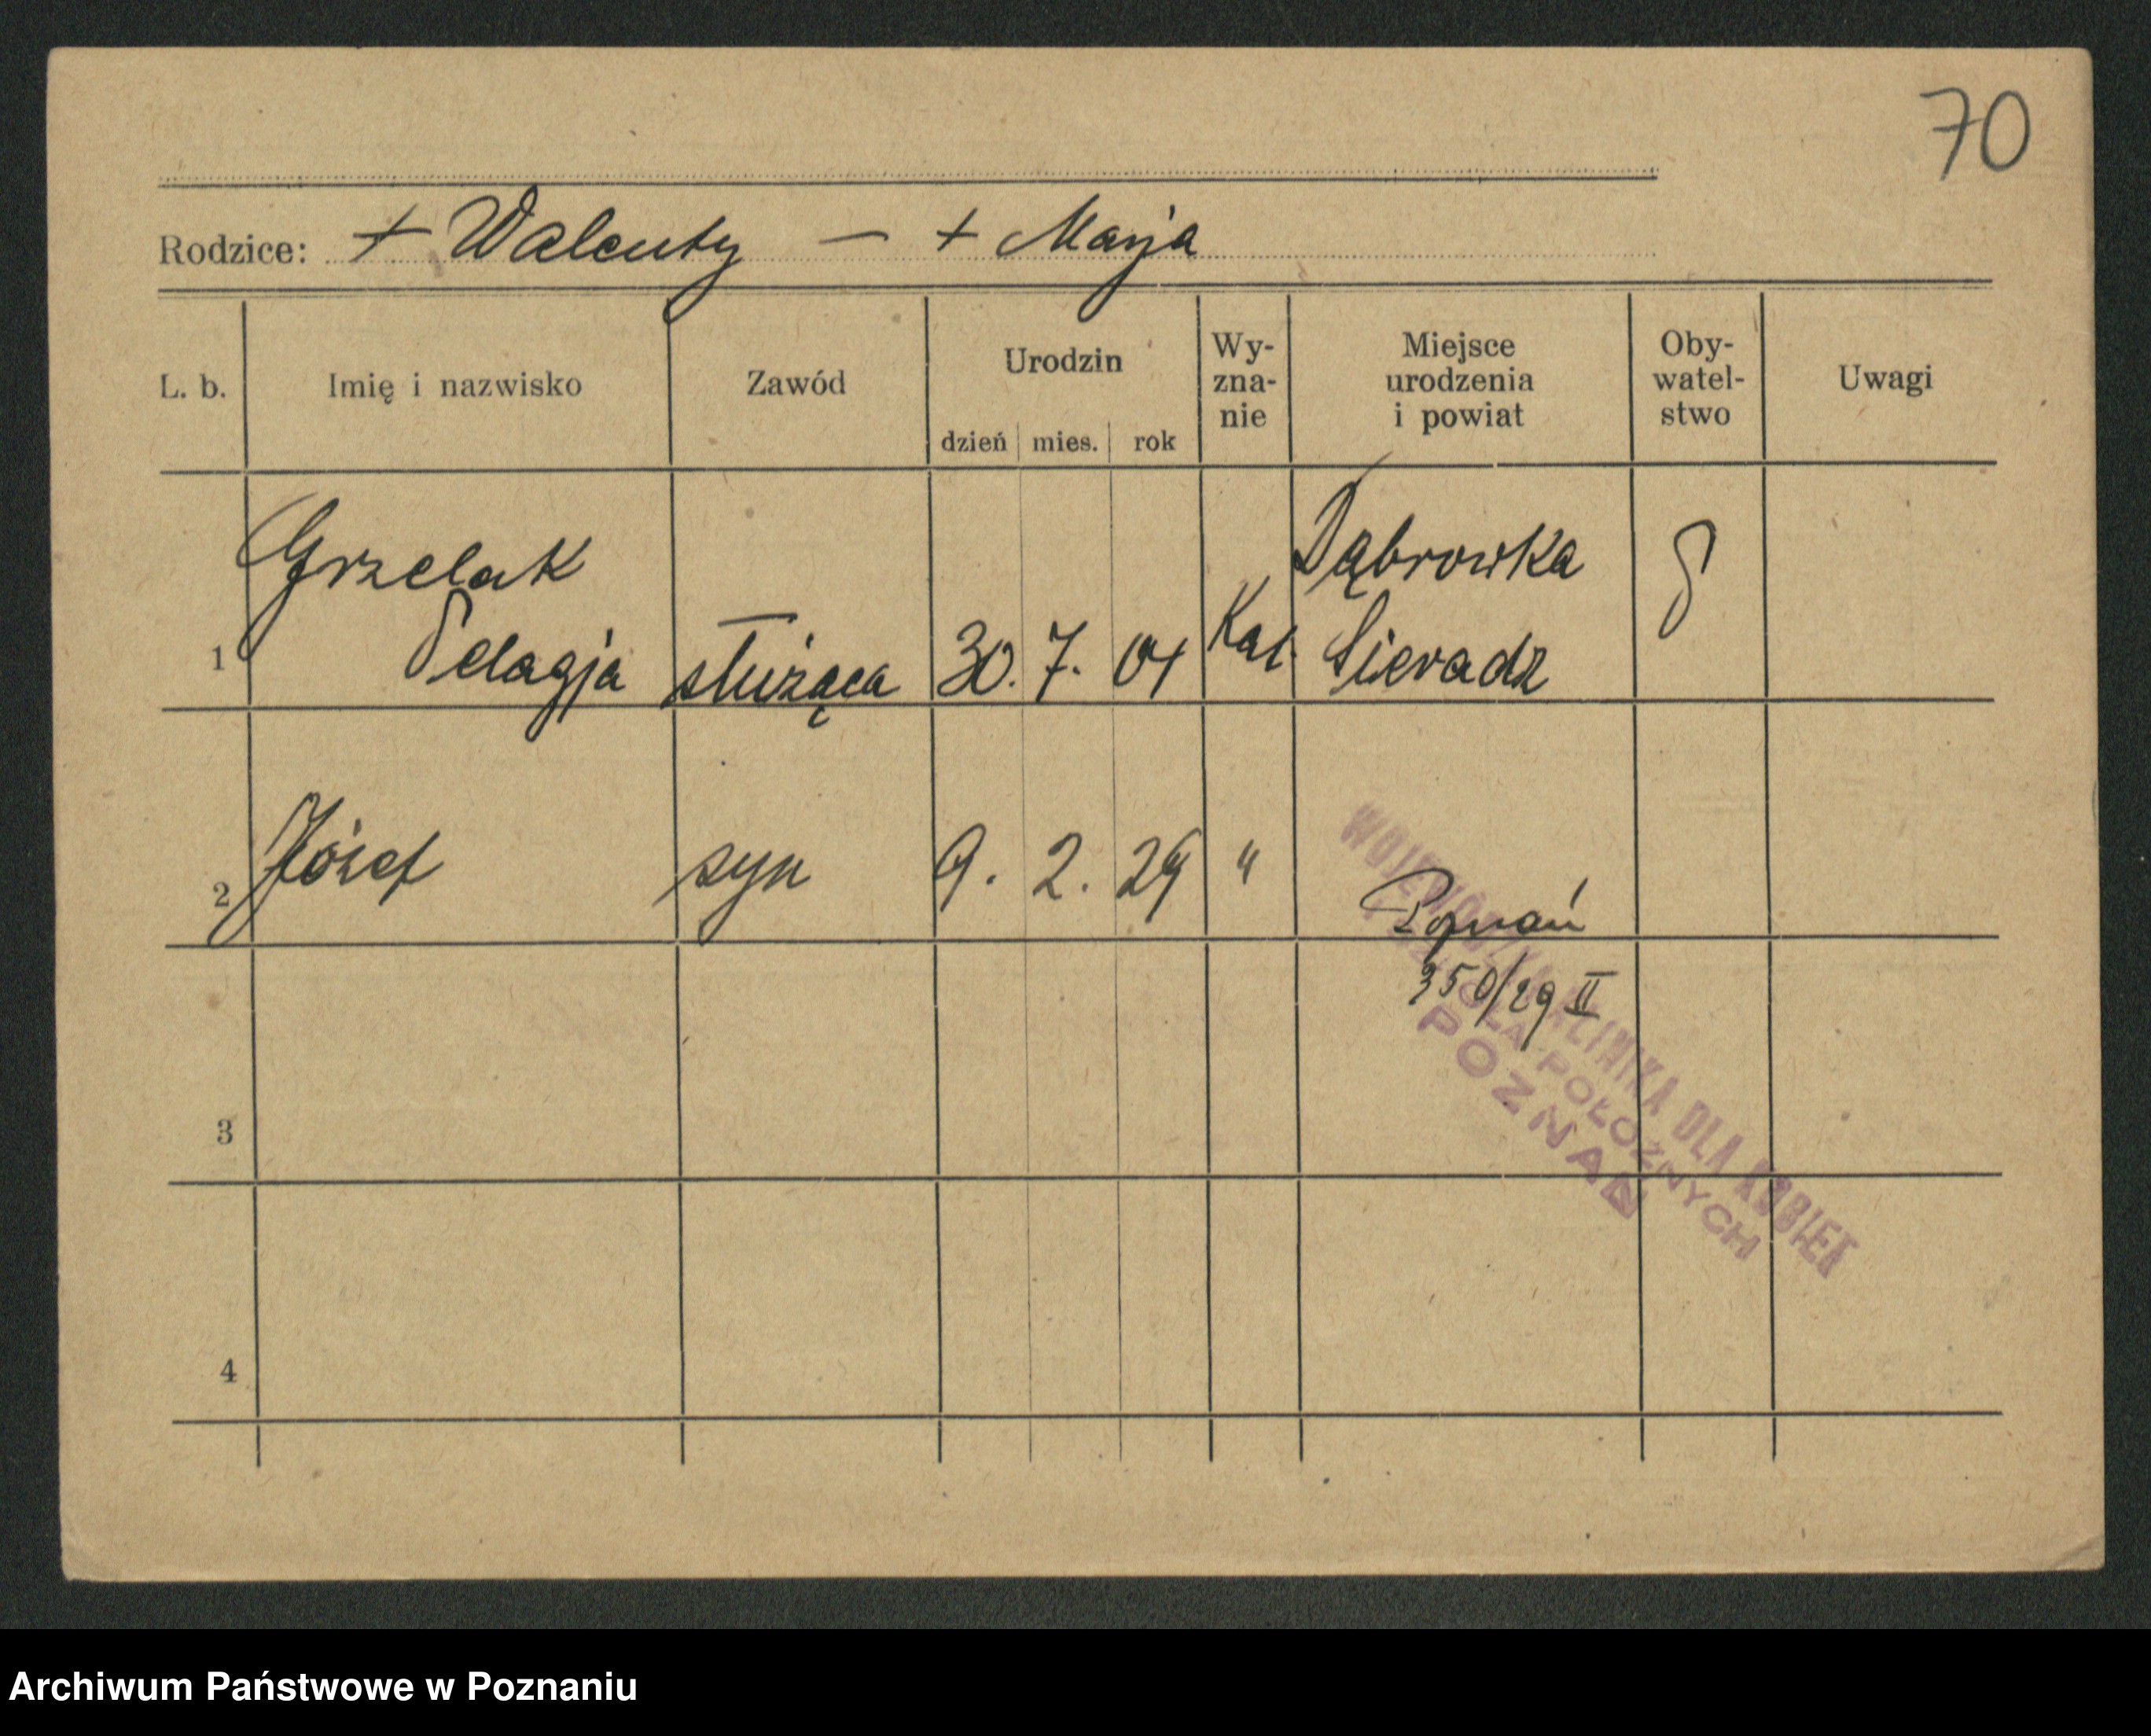 70
Rodzice: + Walenty — + Marja
L. b. Imię i nazwisko Zawód Urodzin dzień mies. rok Wy-zna-nie Miejsce urodzenia i powiat Oby-watel-stwo Uwagi
Grzelak Dąbrowka
1 Pelagja służąca 30. 7. 04 Kat. Sieradz P
2 Józef syn 9. 2. 29 " Poznań
350/29 II
3
4
KLINIKA DLA KOBIET
DLA POŁOŻNYCH
POZNAŃ
Archiwum Państwowe w Poznaniu